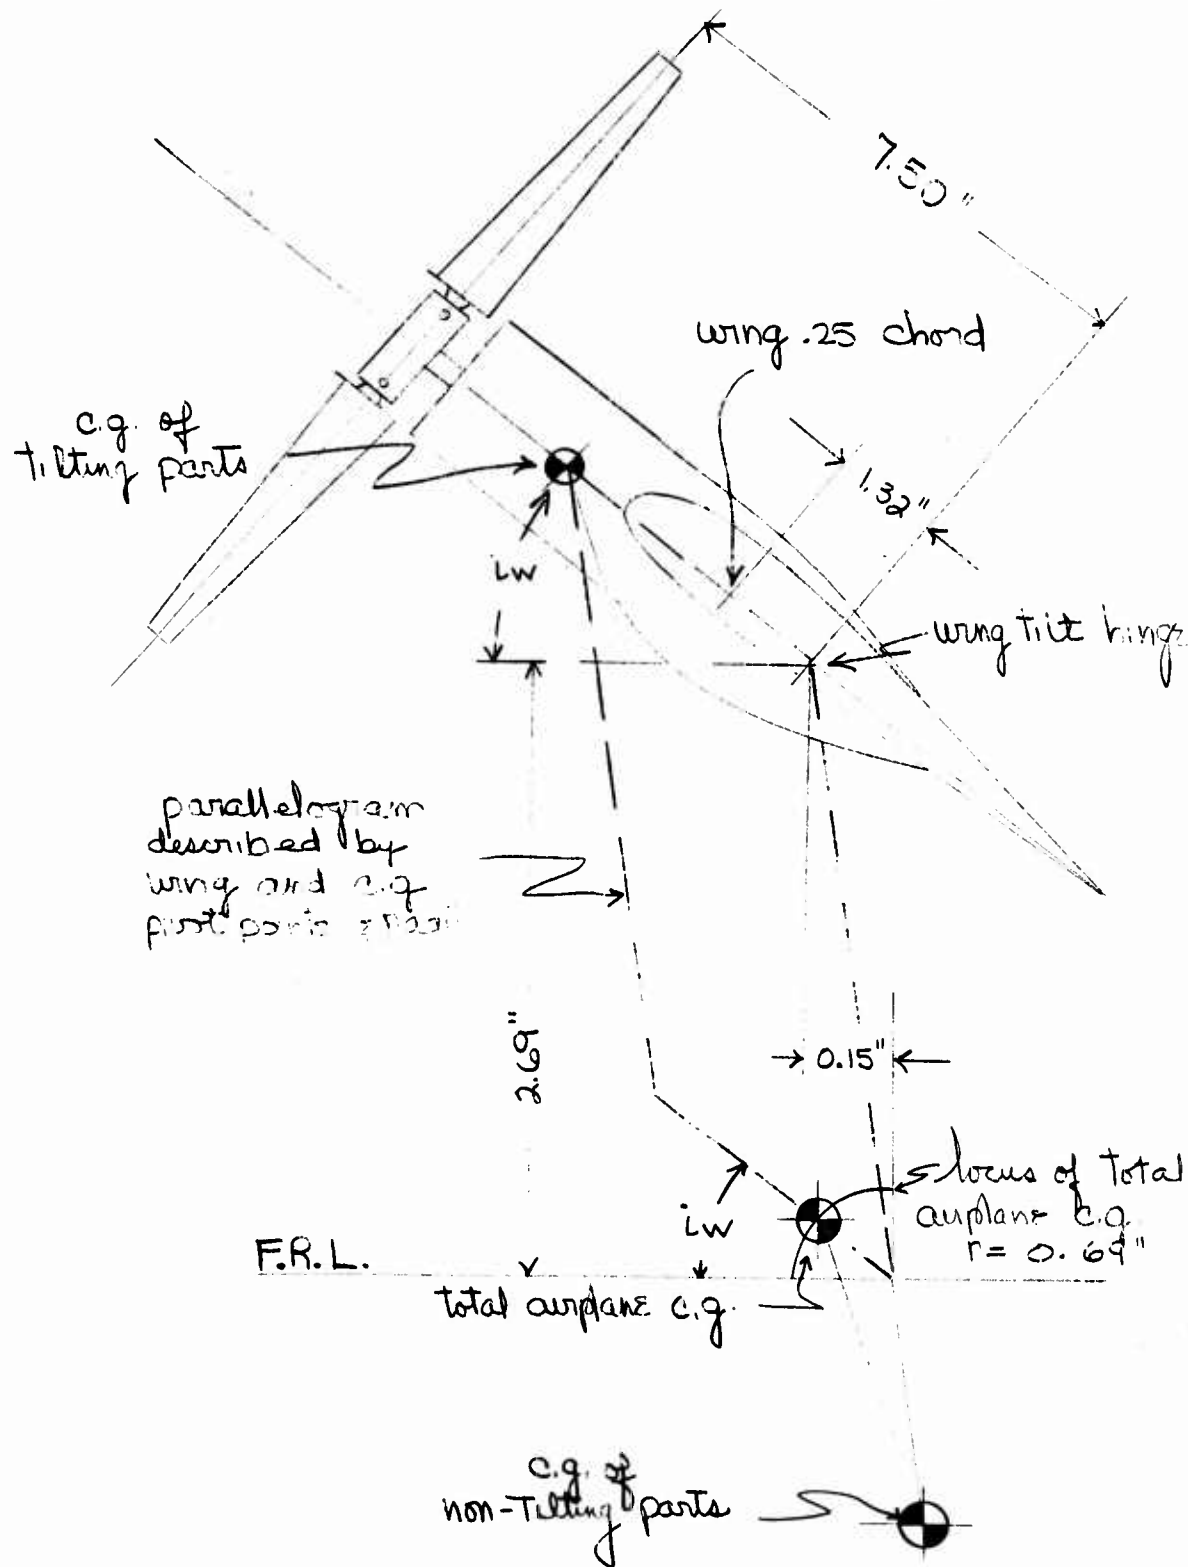 7.50"
wing .25 chord
c.g. of
tilting parts
1.32"
iw
wing tilt hinge
parallelogram
described by
wing and c.g
pivot
2.69"
0.15"
locus of total
airplane c.g.
r = 0.69"
iw
F.R.L.
total airplane c.g.
c.g. of
non-Tilting parts